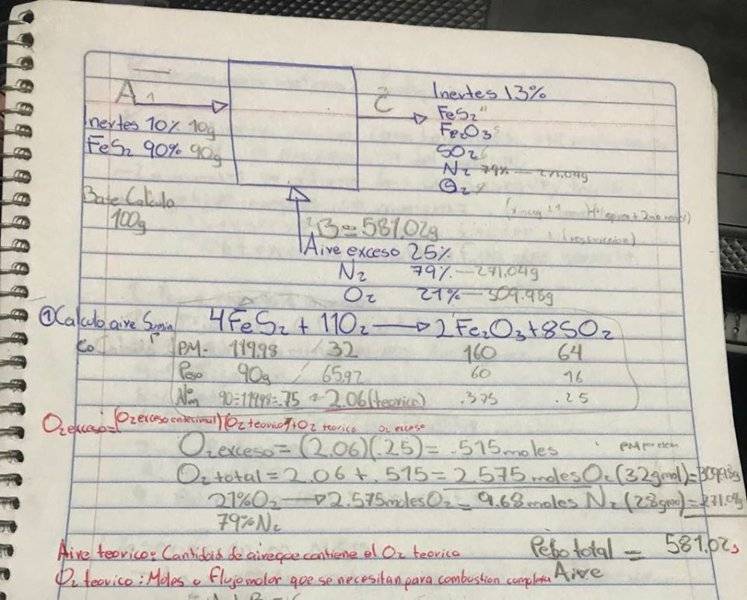 A 1
Inertes 10% 10g
FeS2 90% 90g
Base Calculo
100g
C
Inertes 13%
FeS2
Fe2O3
SO2
N2 79% — 271.04g
O2
B = 581.02g
Aire exceso 25%
N2 79% — 271.04g
O2 21% — 309.98g
① Calculo aire Sumin
4FeS2 + 11O2 → 2Fe2O3 + 8SO2
PM- 119.98 32 160 64
Peso 90g 65.92 60 16
90÷119.98=.75 2.06 (teorico) .375 .25
O2 exceso= (O2 teorico) + O2 teorico O2 exceso
O2 exceso = (2.06)(.25) = .515 moles
O2 total = 2.06 + .515 = 2.575 moles O2 (32gmol) = 309.98g
21% O2 → 2.575 moles O2 = 9.68 moles N2 (28gmol) = 271.04g
79% N2
Aire teorico: Cantidad de aire que contiene el O2 teorico
Peso total = 581.02g
Aire
O2 teorico: Moles o flujo molar que se necesitan para combustion completa